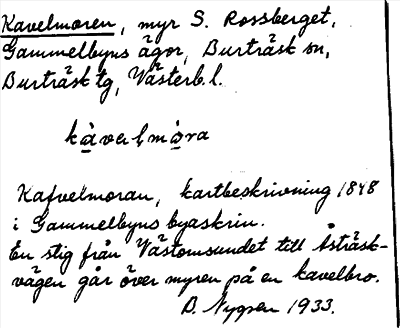 Kavelmoren, myr S. Rossberget,
Gammelbyns ägor, Burträsk sn,
Burträsk tg, Västerb. l.
kàvalmo̲ra
Kafvelmoran, kartbeskrivning 1848
i Gammelbyns byaskrin.
En stig från Västomsundet till Åsträsk-
vägen går över myren på en kavelbro.
D. Nygren 1933.